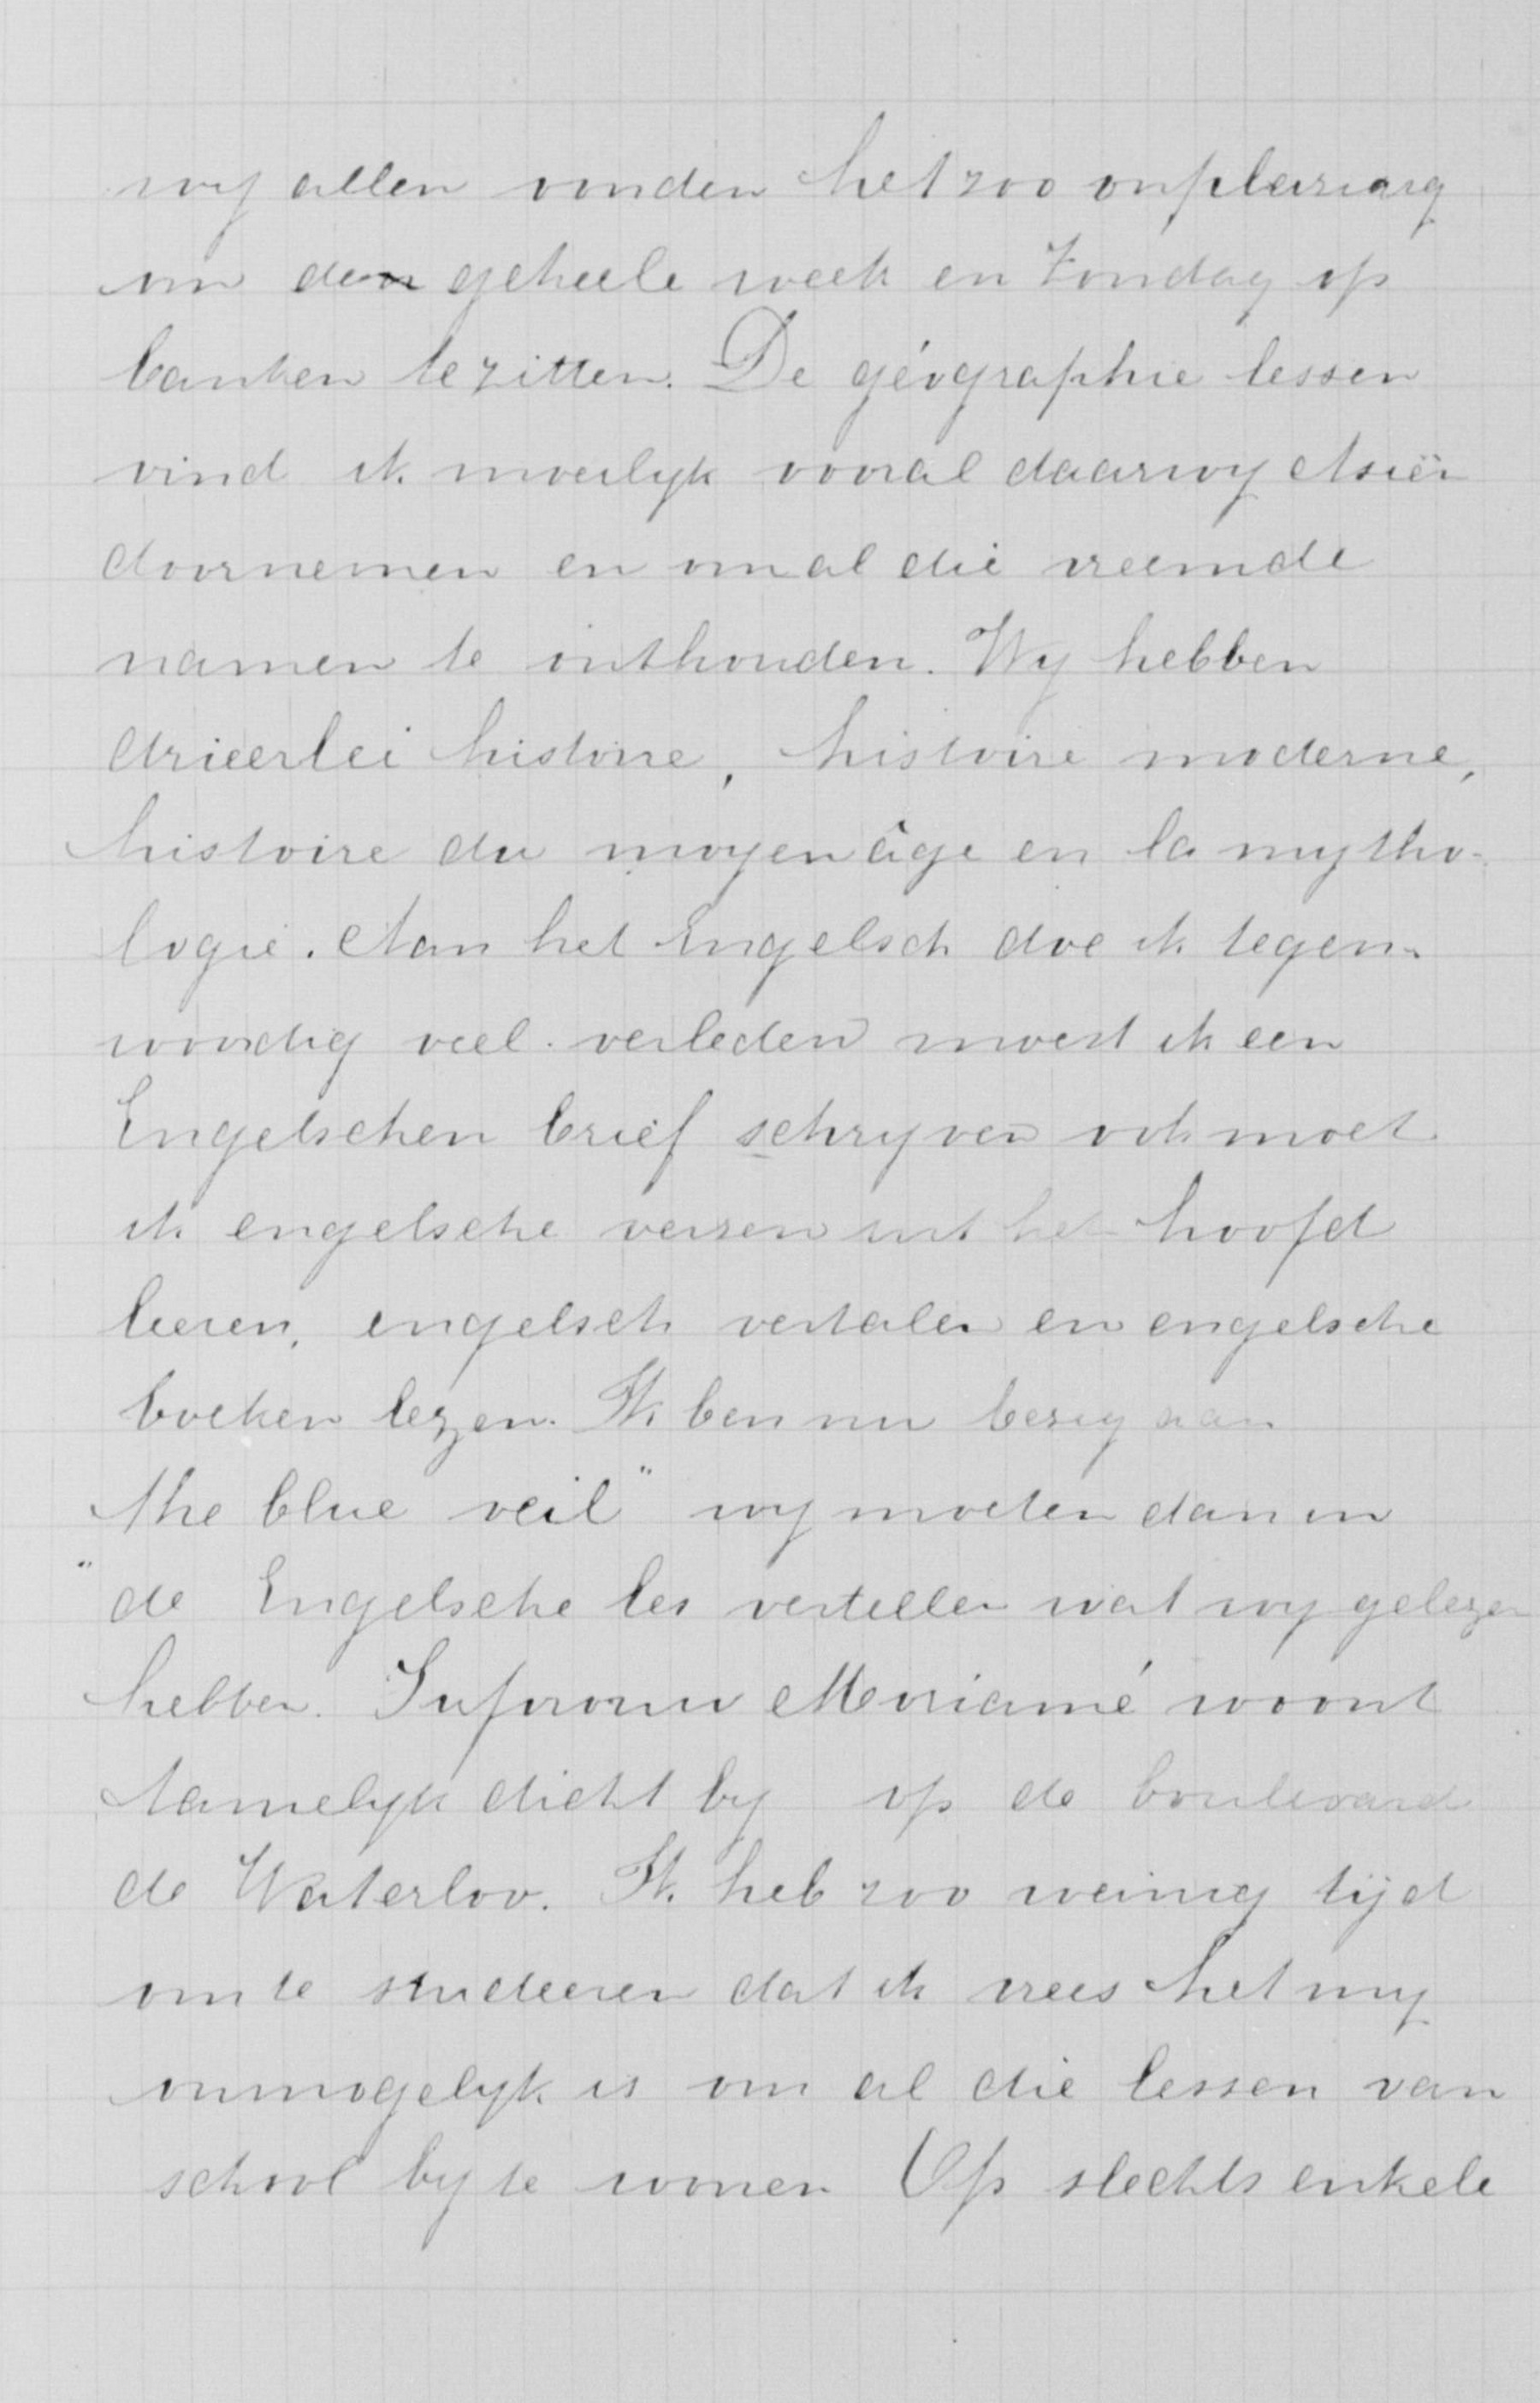 wy allen vonden het zoo onpleizierig
om den geheele week en Zondag op
banken te zitten. De géographie lessen
vind ik moeilyk vooral daar wy Asiën
doornemen en om al die vreemde
namen te onthouden. Wy hebben
drieerlei histoire, histoire moderne,
histoire du moyen âge en la mytho-
logie. Aan het Engelsch doe ik tegen-
woordig veel. verleden moest ik een
Engelschen brief schryven ook moet
ik engelsche verzen uit het hoofd
leeren, engelsch vertalen en engelsche
boeken lezen. Ik ben nu bezig aan
the blue veil" wy moeten dan in
"de Engelsche les vertellen wat wy gelezen
hebben. Jufvrouw Moriamé woont
tamelyk dicht by op de boulevard
de Waterloo. Ik heb zoo weinig tijd
om te studeeren dat ik vrees het my
onmogelyk is om al die lessen van
school by te wonen Op slechts enkele